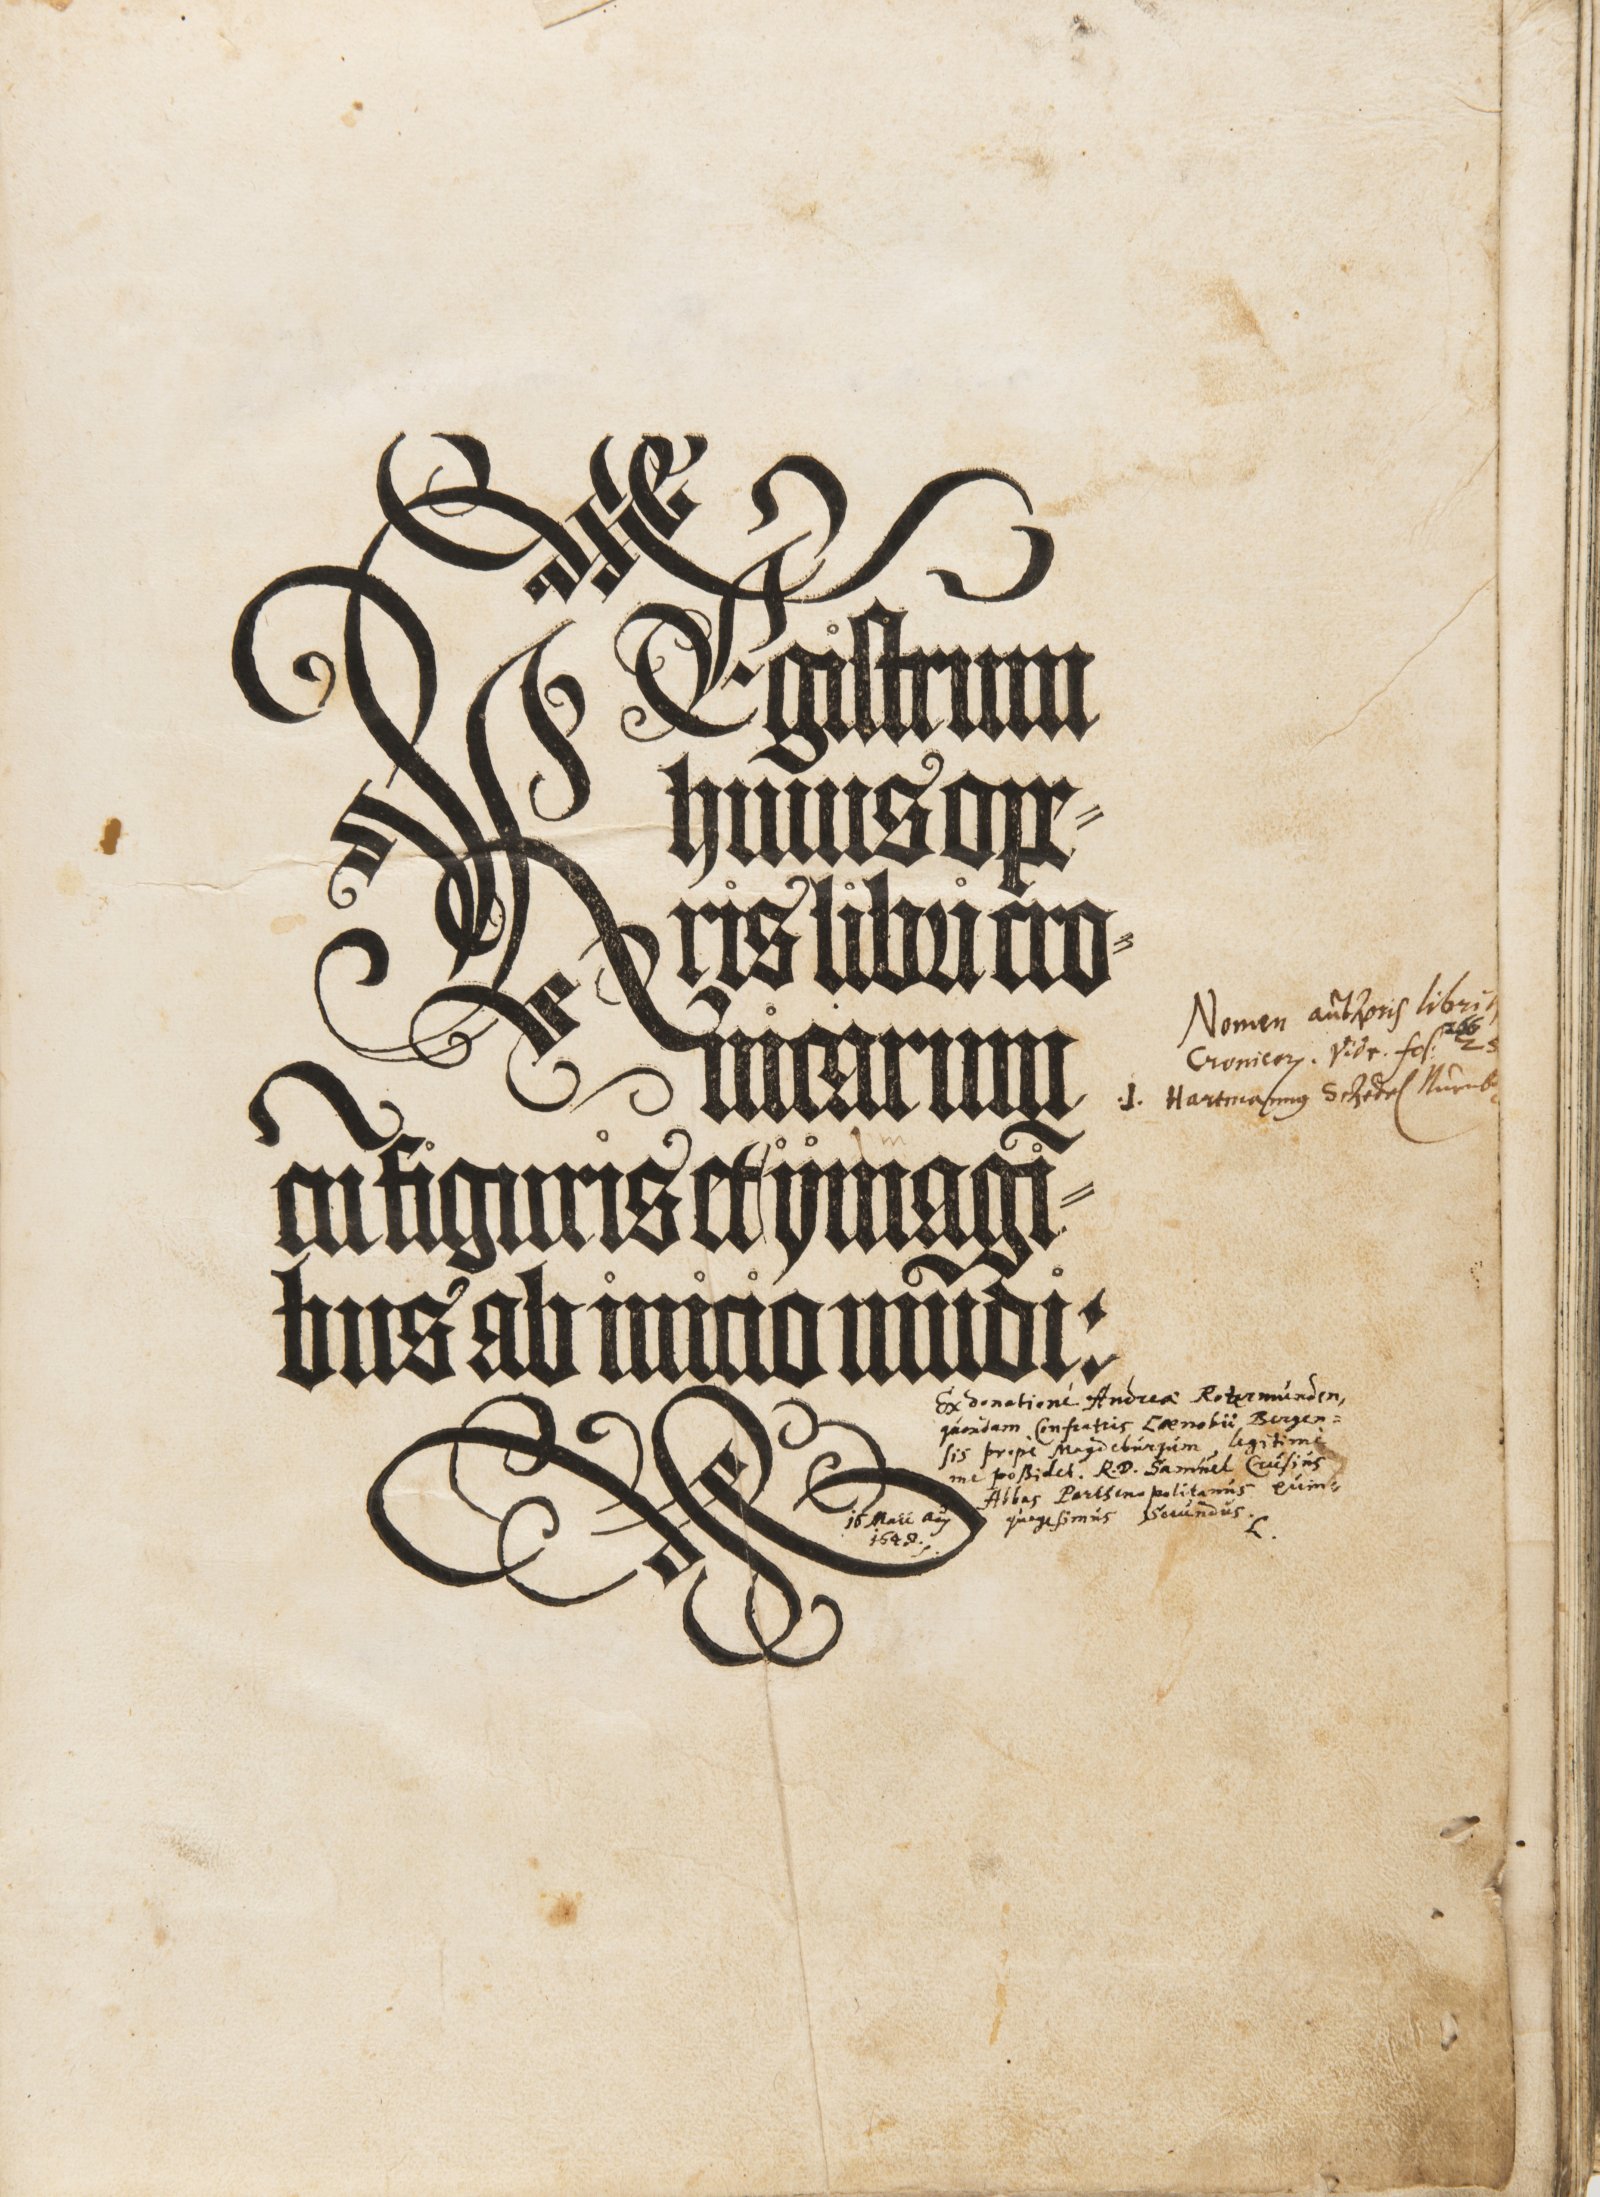 REgistrum
huius ope-
ris libri cro-
nicarum
cū figuris et ymagi-
bus ab inicio mūdi:
Nomen authoris libri
Cronicor. Vide fol.
.I. Hartmannus Schedel Nurnb
Ex donatione Andreæ Rotermunden,
quondam Confratris Cœnobii Bergen=
sis prope Magdeburgum, legitime
me poßidet. R.D. Samuel Crusius
Abbas Parthenopolitanus quin=
quagesimus Secundus.
16 Maii
1648.